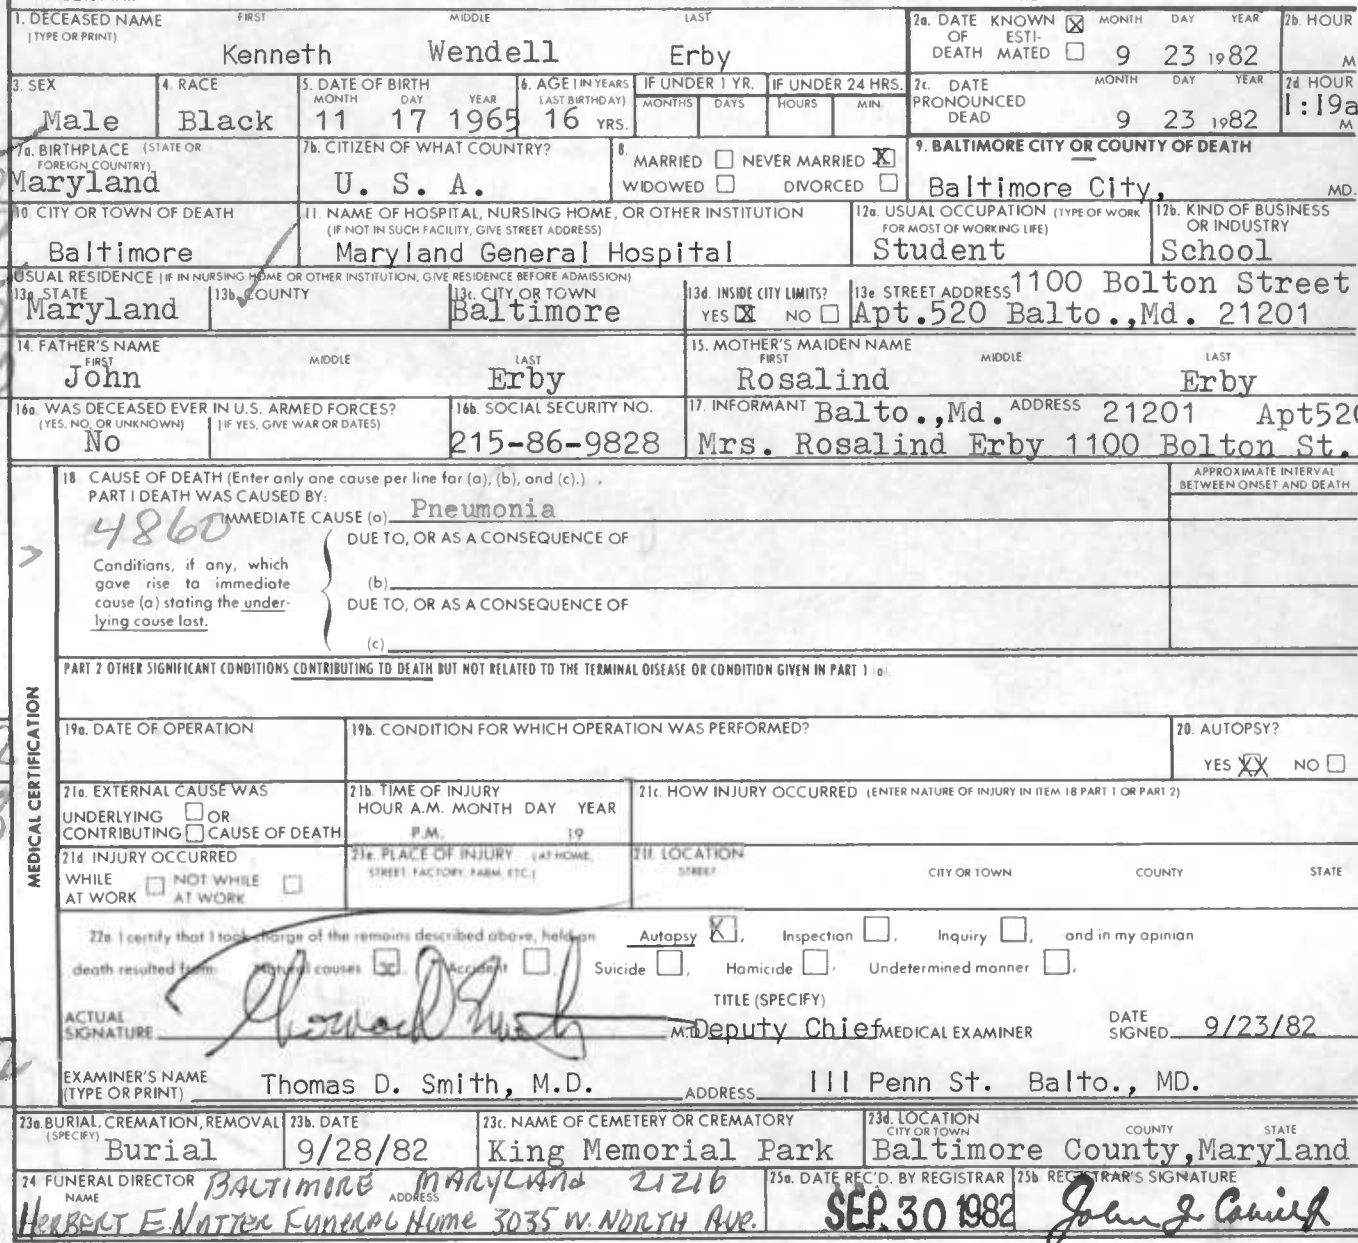 1. DECEASED NAME FIRST MIDDLE LAST
(TYPE OR PRINT)
Kenneth Wendell Erby
2a. DATE KNOWN ☒ MONTH DAY YEAR
OF ESTI-
DEATH MATED ☐ 9 23 1982
2b. HOUR
M
3. SEX
Male
4. RACE
Black
5. DATE OF BIRTH
MONTH DAY YEAR
11 17 1965
6. AGE (IN YEARS
LAST BIRTHDAY)
16 YRS.
IF UNDER 1 YR.
MONTHS DAYS
IF UNDER 24 HRS.
HOURS MIN.
2c. DATE MONTH DAY YEAR
PRONOUNCED
DEAD 9 23 1982
2d HOUR
1:19a
M
7a. BIRTHPLACE (STATE OR
FOREIGN COUNTRY)
Maryland
7b. CITIZEN OF WHAT COUNTRY?
U. S. A.
8.
MARRIED ☐ NEVER MARRIED ☒
WIDOWED ☐ DIVORCED ☐
9. BALTIMORE CITY OR COUNTY OF DEATH
Baltimore City, MD.
10. CITY OR TOWN OF DEATH
Baltimore
11. NAME OF HOSPITAL, NURSING HOME, OR OTHER INSTITUTION
(IF NOT IN SUCH FACILITY, GIVE STREET ADDRESS)
Maryland General Hospital
12a. USUAL OCCUPATION (TYPE OF WORK
FOR MOST OF WORKING LIFE)
Student
12b. KIND OF BUSINESS
OR INDUSTRY
School
USUAL RESIDENCE (IF IN NURSING HOME OR OTHER INSTITUTION, GIVE RESIDENCE BEFORE ADMISSION)
13a. STATE
Maryland
13b. COUNTY
13c. CITY OR TOWN
Baltimore
13d. INSIDE CITY LIMITS?
YES ☒ NO ☐
13e STREET ADDRESS 1100 Bolton Street
Apt.520 Balto.,Md. 21201
14. FATHER'S NAME
FIRST MIDDLE LAST
John Erby
15. MOTHER'S MAIDEN NAME
FIRST MIDDLE LAST
Rosalind Erby
16a. WAS DECEASED EVER IN U.S. ARMED FORCES?
(YES, NO, OR UNKNOWN) (IF YES, GIVE WAR OR DATES)
No
16b. SOCIAL SECURITY NO.
215-86-9828
17. INFORMANT Balto.,Md. ADDRESS 21201 Apt520
Mrs. Rosalind Erby 1100 Bolton St.
MEDICAL CERTIFICATION
18 CAUSE OF DEATH (Enter only one cause per line for (a), (b), and (c).)
PART I DEATH WAS CAUSED BY:
APPROXIMATE INTERVAL
BETWEEN ONSET AND DEATH
4860 IMMEDIATE CAUSE (a) Pneumonia
DUE TO, OR AS A CONSEQUENCE OF
Conditions, if any, which
gave rise to immediate
cause (a) stating the under-
lying cause last.
(b)
DUE TO, OR AS A CONSEQUENCE OF
(c)
PART 2 OTHER SIGNIFICANT CONDITIONS CONTRIBUTING TO DEATH BUT NOT RELATED TO THE TERMINAL DISEASE OR CONDITION GIVEN IN PART 1 (a).
19a. DATE OF OPERATION
19b. CONDITION FOR WHICH OPERATION WAS PERFORMED?
20. AUTOPSY?
YES XX NO ☐
21a. EXTERNAL CAUSE WAS
UNDERLYING ☐ OR
CONTRIBUTING ☐ CAUSE OF DEATH
21b. TIME OF INJURY
HOUR A.M. MONTH DAY YEAR
P.M. 19
21c. HOW INJURY OCCURRED (ENTER NATURE OF INJURY IN ITEM 18 PART 1 OR PART 2)
21d INJURY OCCURRED
WHILE ☐ NOT WHILE ☐
AT WORK AT WORK
21e. PLACE OF INJURY (AT HOME,
STREET, FACTORY, FARM, ETC.)
21f. LOCATION
STREET CITY OR TOWN COUNTY STATE
22a I certify that I took charge of the remains described above, held an Autopsy ☒, Inspection ☐, Inquiry ☐, and in my opinion
death resulted from Natural causes ☒, Accident ☐, Suicide ☐, Homicide ☐, Undetermined manner ☐,
TITLE (SPECIFY)
ACTUAL
SIGNATURE M.D. Deputy Chief MEDICAL EXAMINER
DATE
SIGNED 9/23/82
EXAMINER'S NAME
(TYPE OR PRINT) Thomas D. Smith, M.D. ADDRESS 111 Penn St. Balto., MD.
23a. BURIAL, CREMATION, REMOVAL
(SPECIFY)
Burial
23b. DATE
9/28/82
23c. NAME OF CEMETERY OR CREMATORY
King Memorial Park
23d. LOCATION
CITY OR TOWN COUNTY STATE
Baltimore County,Maryland
24 FUNERAL DIRECTOR BALTIMORE MARYLAND 21216
NAME ADDRESS
HERBERT E. NUTTER FUNERAL HOME 3035 W. NORTH AVE.
25a. DATE REC'D. BY REGISTRAR
SEP. 30 1982
25b REGISTRAR'S SIGNATURE